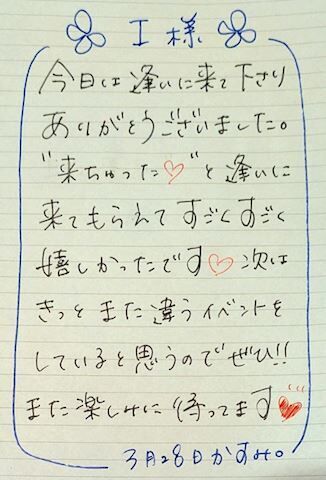 I様
今日は逢いに来て下さり
ありがとうございました。
"来ちゃった♡"と逢いに
来てもらえてすごくすごく
嬉しかったです♡次は
きっとまた違うイベントを
していると思うのでぜひ!!
また楽しみに待ってます♥
3月28日かすみ。